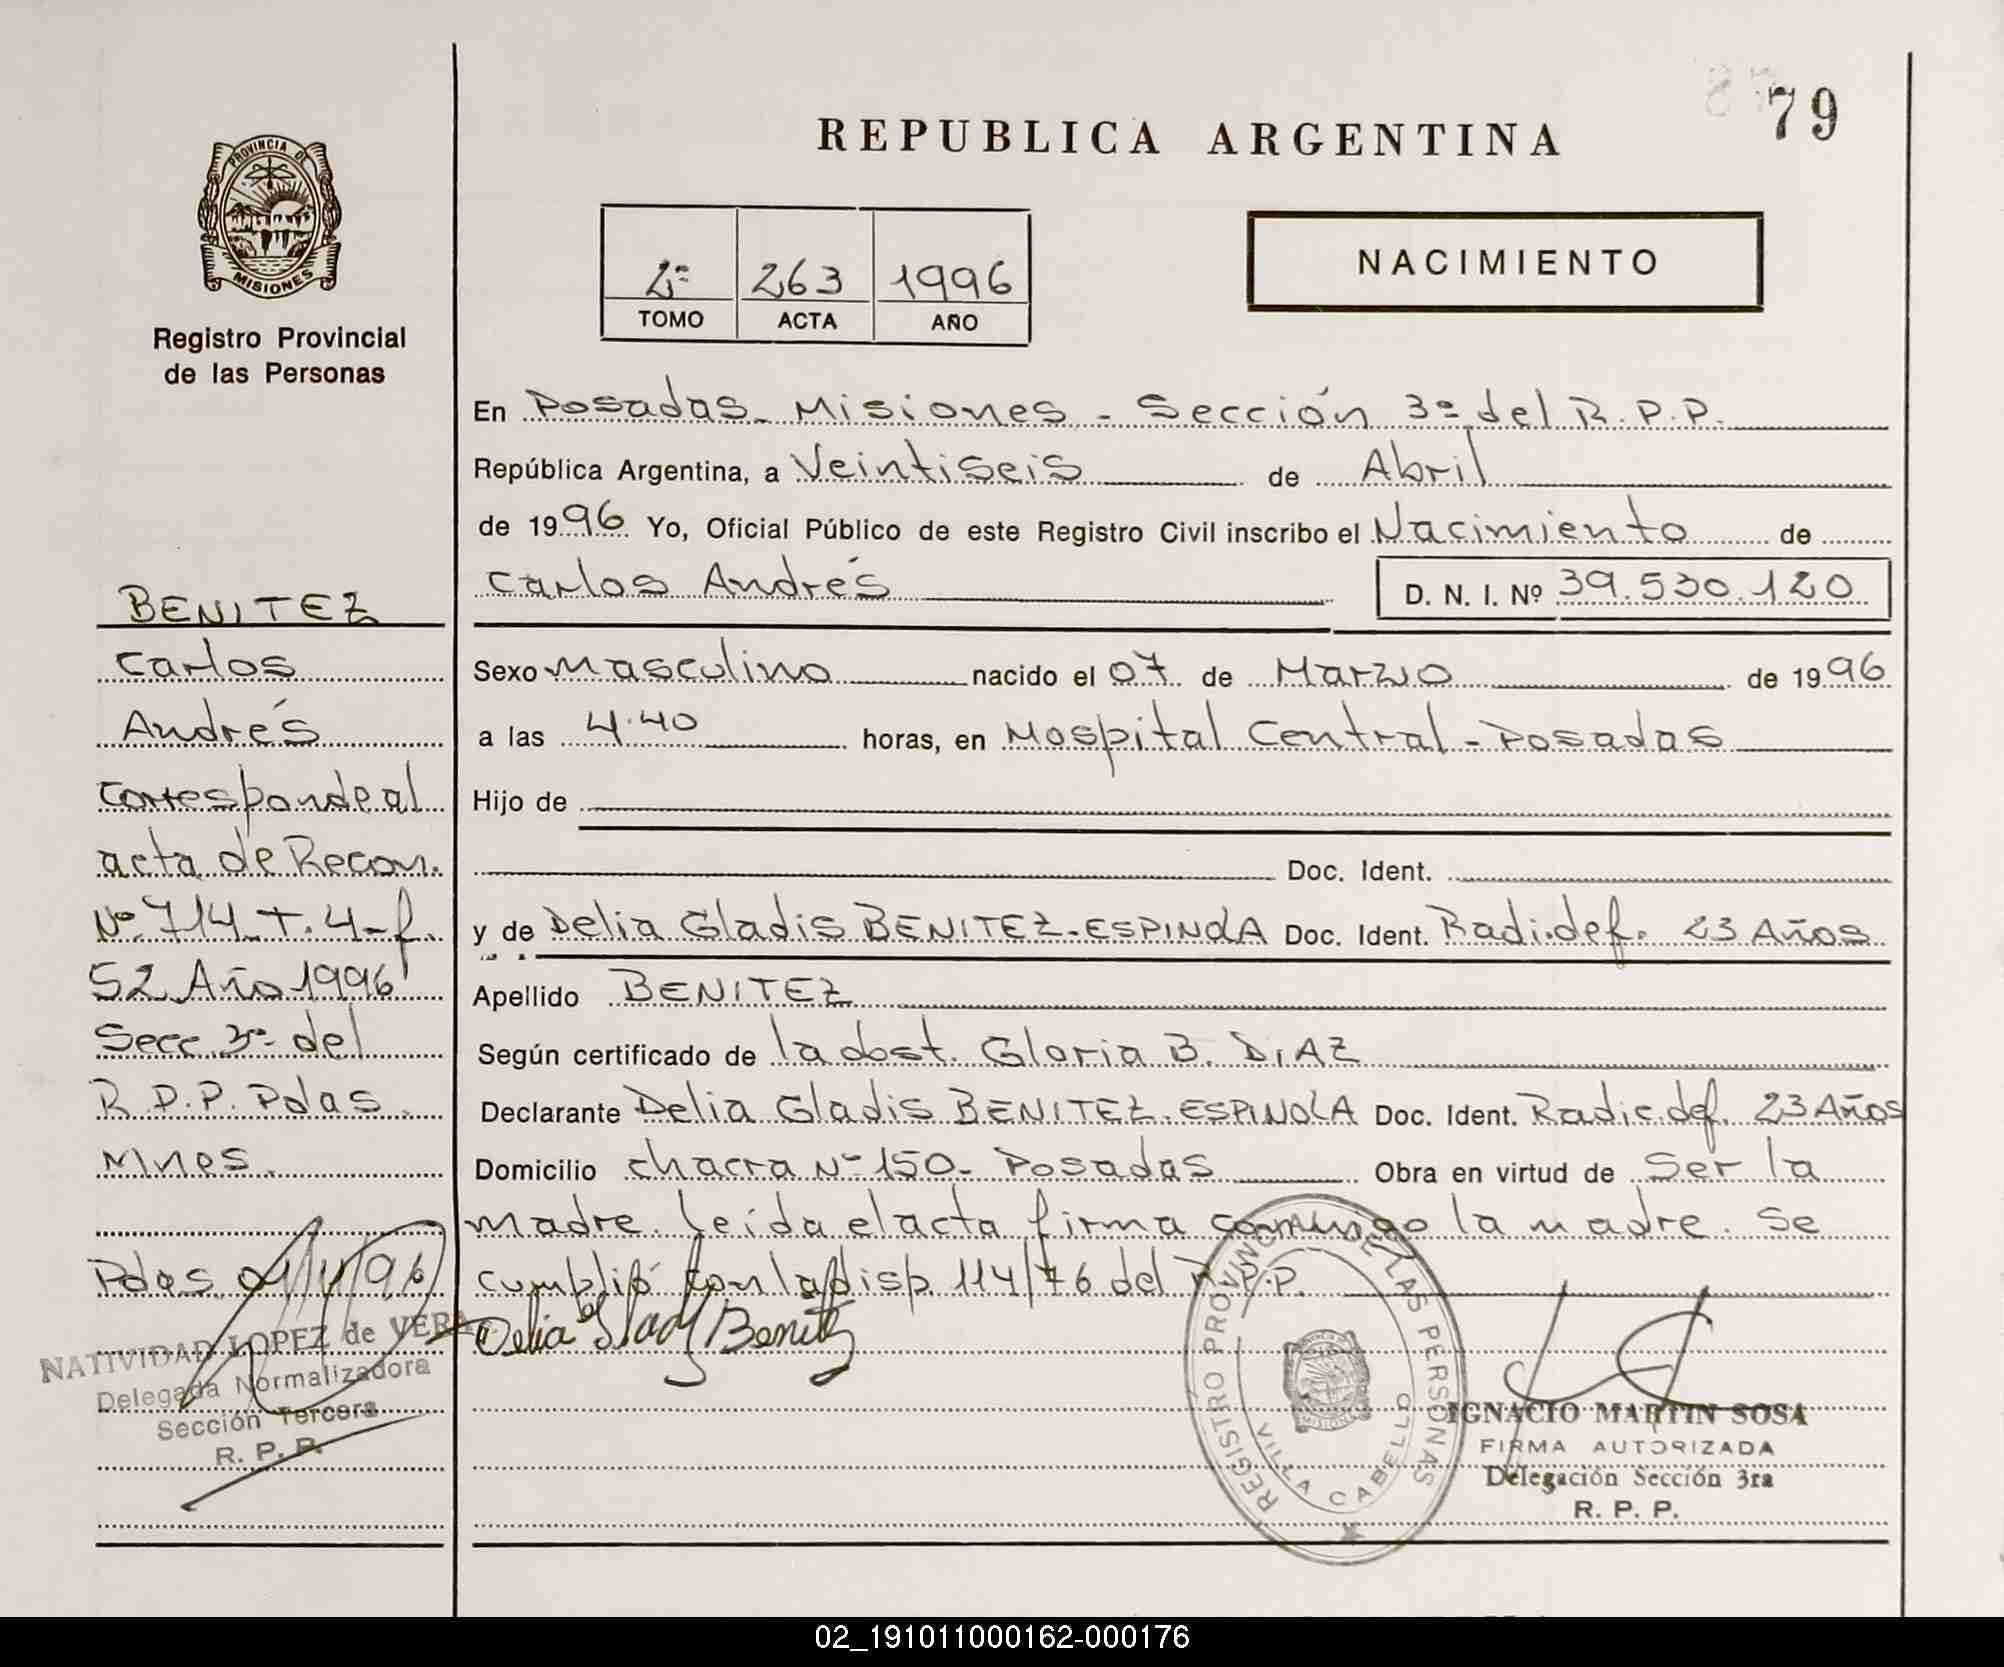 79
REPUBLICA ARGENTINA
PROVINCIA DE
MISIONES
Registro Provincial
de las Personas
2º 263 1996
TOMO ACTA AÑO
NACIMIENTO
En Posadas - Misiones - Sección 3º del R.P.P.
República Argentina, a Veintiseis de Abril
de 1996 Yo, Oficial Público de este Registro Civil inscribo el Nacimiento de
Carlos Andrés D. N. I. Nº 39.530.120
Sexo Masculino nacido el 07 de Marzo de 1996
a las 4.40 horas, en Hospital Central - Posadas
Hijo de
Doc. Ident.
y de Delia Gladis BENITEZ-ESPINOLA Doc. Ident. Radi.def. 23 Años
Apellido BENITEZ
Según certificado de la obst. Gloria B. DIAZ
Declarante Delia Gladis BENITEZ-ESPINOLA Doc. Ident. Radic.def. 23 Años
Domicilio chacra Nº 150 - Posadas Obra en virtud de Ser la
madre. Leída el acta firma conmigo la madre. Se
cumplió con la disp. 114/76 del R.P.P.
Delia Glady Benitez
REGISTRO PROVINCIAL DE LAS PERSONAS
VILLA CABELLO
MISIONES
IGNACIO MARTIN SOSA
FIRMA AUTORIZADA
Delegación Sección 3ra
R. P. P.
BENITEZ
Carlos
Andrés
Corresponde al
acta de Recon.
Nº 714 - T. 4 - f.
52 Año 1996
Secc. 3º del
R.P.P. Pdas.
Mnes.
Pdas. 01/11/96
NATIVIDAD LOPEZ de VERA
Delegada Normalizadora
Sección Tercera
R. P. P.
02_191011000162-000176